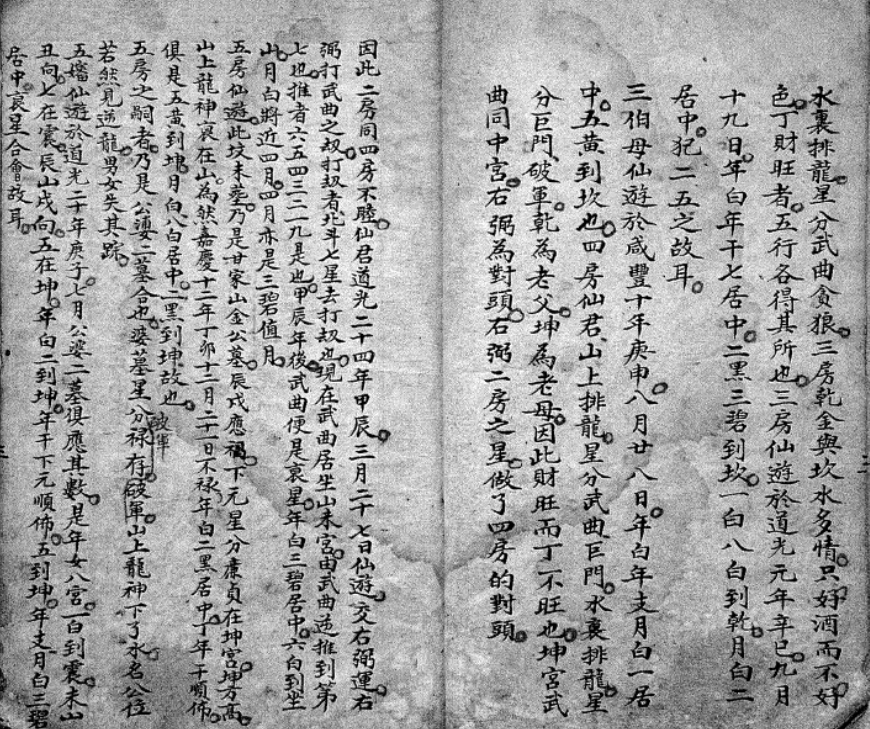 水裏排龍星分武曲貪狼三房乾金與坎水多情只好酒而不好
色丁財旺者五行各得其所也三房仙遊於道光元年辛巳九月
十九日年白年干七居中二黑三碧到坎一白八白到乾月白二
居中犯二五之故耳
三伯母仙遊於咸豐十年庚申八月廿八日年白年支月白一居
中五黃到坎也四房仙君山上排龍星分武曲巨門水裏排龍星
分巨門破軍乾為老父坤為老母因此財旺而丁不旺也坤宮武
曲同中宮右弼為對頭右弼二房之星做了四房的對頭
因此二房同四房不睦仙君道光二十四年甲辰三月二十七日仙遊交右弼運右
弼打武曲之刼打刼者北斗七星去打刼也現在武曲居坐山未宮由武曲逆推到第
七也推者六五四三二一九是也甲辰年後武曲便是衰星年白三碧居中六白到坐
山月白將近四月四月亦是三碧值月
五房仙遊此坟未塟乃是甘家山金公墓辰戌應禍下元星分廉貞在坤宮坤方高
山上龍神衰在山為然嘉慶十二年丁卯十二月二十一日不祿年白二黑居中丁年干順佈
俱是五黃到坤月白八白居中二黑到坤故也
五房之嗣者乃是公婆二墓合也婆墓星分祿存破軍山上龍神下了水名公位
破軍
若然見逆龍男女失其踪
五嬸仙遊於道光二十年庚子七月公婆二墓俱應其數是年女八宮一白到震未山
丑向七在震辰山戌向五在坤年白二到坤年干下元順佈五到坤年支月白三碧
居中衰星合會故耳